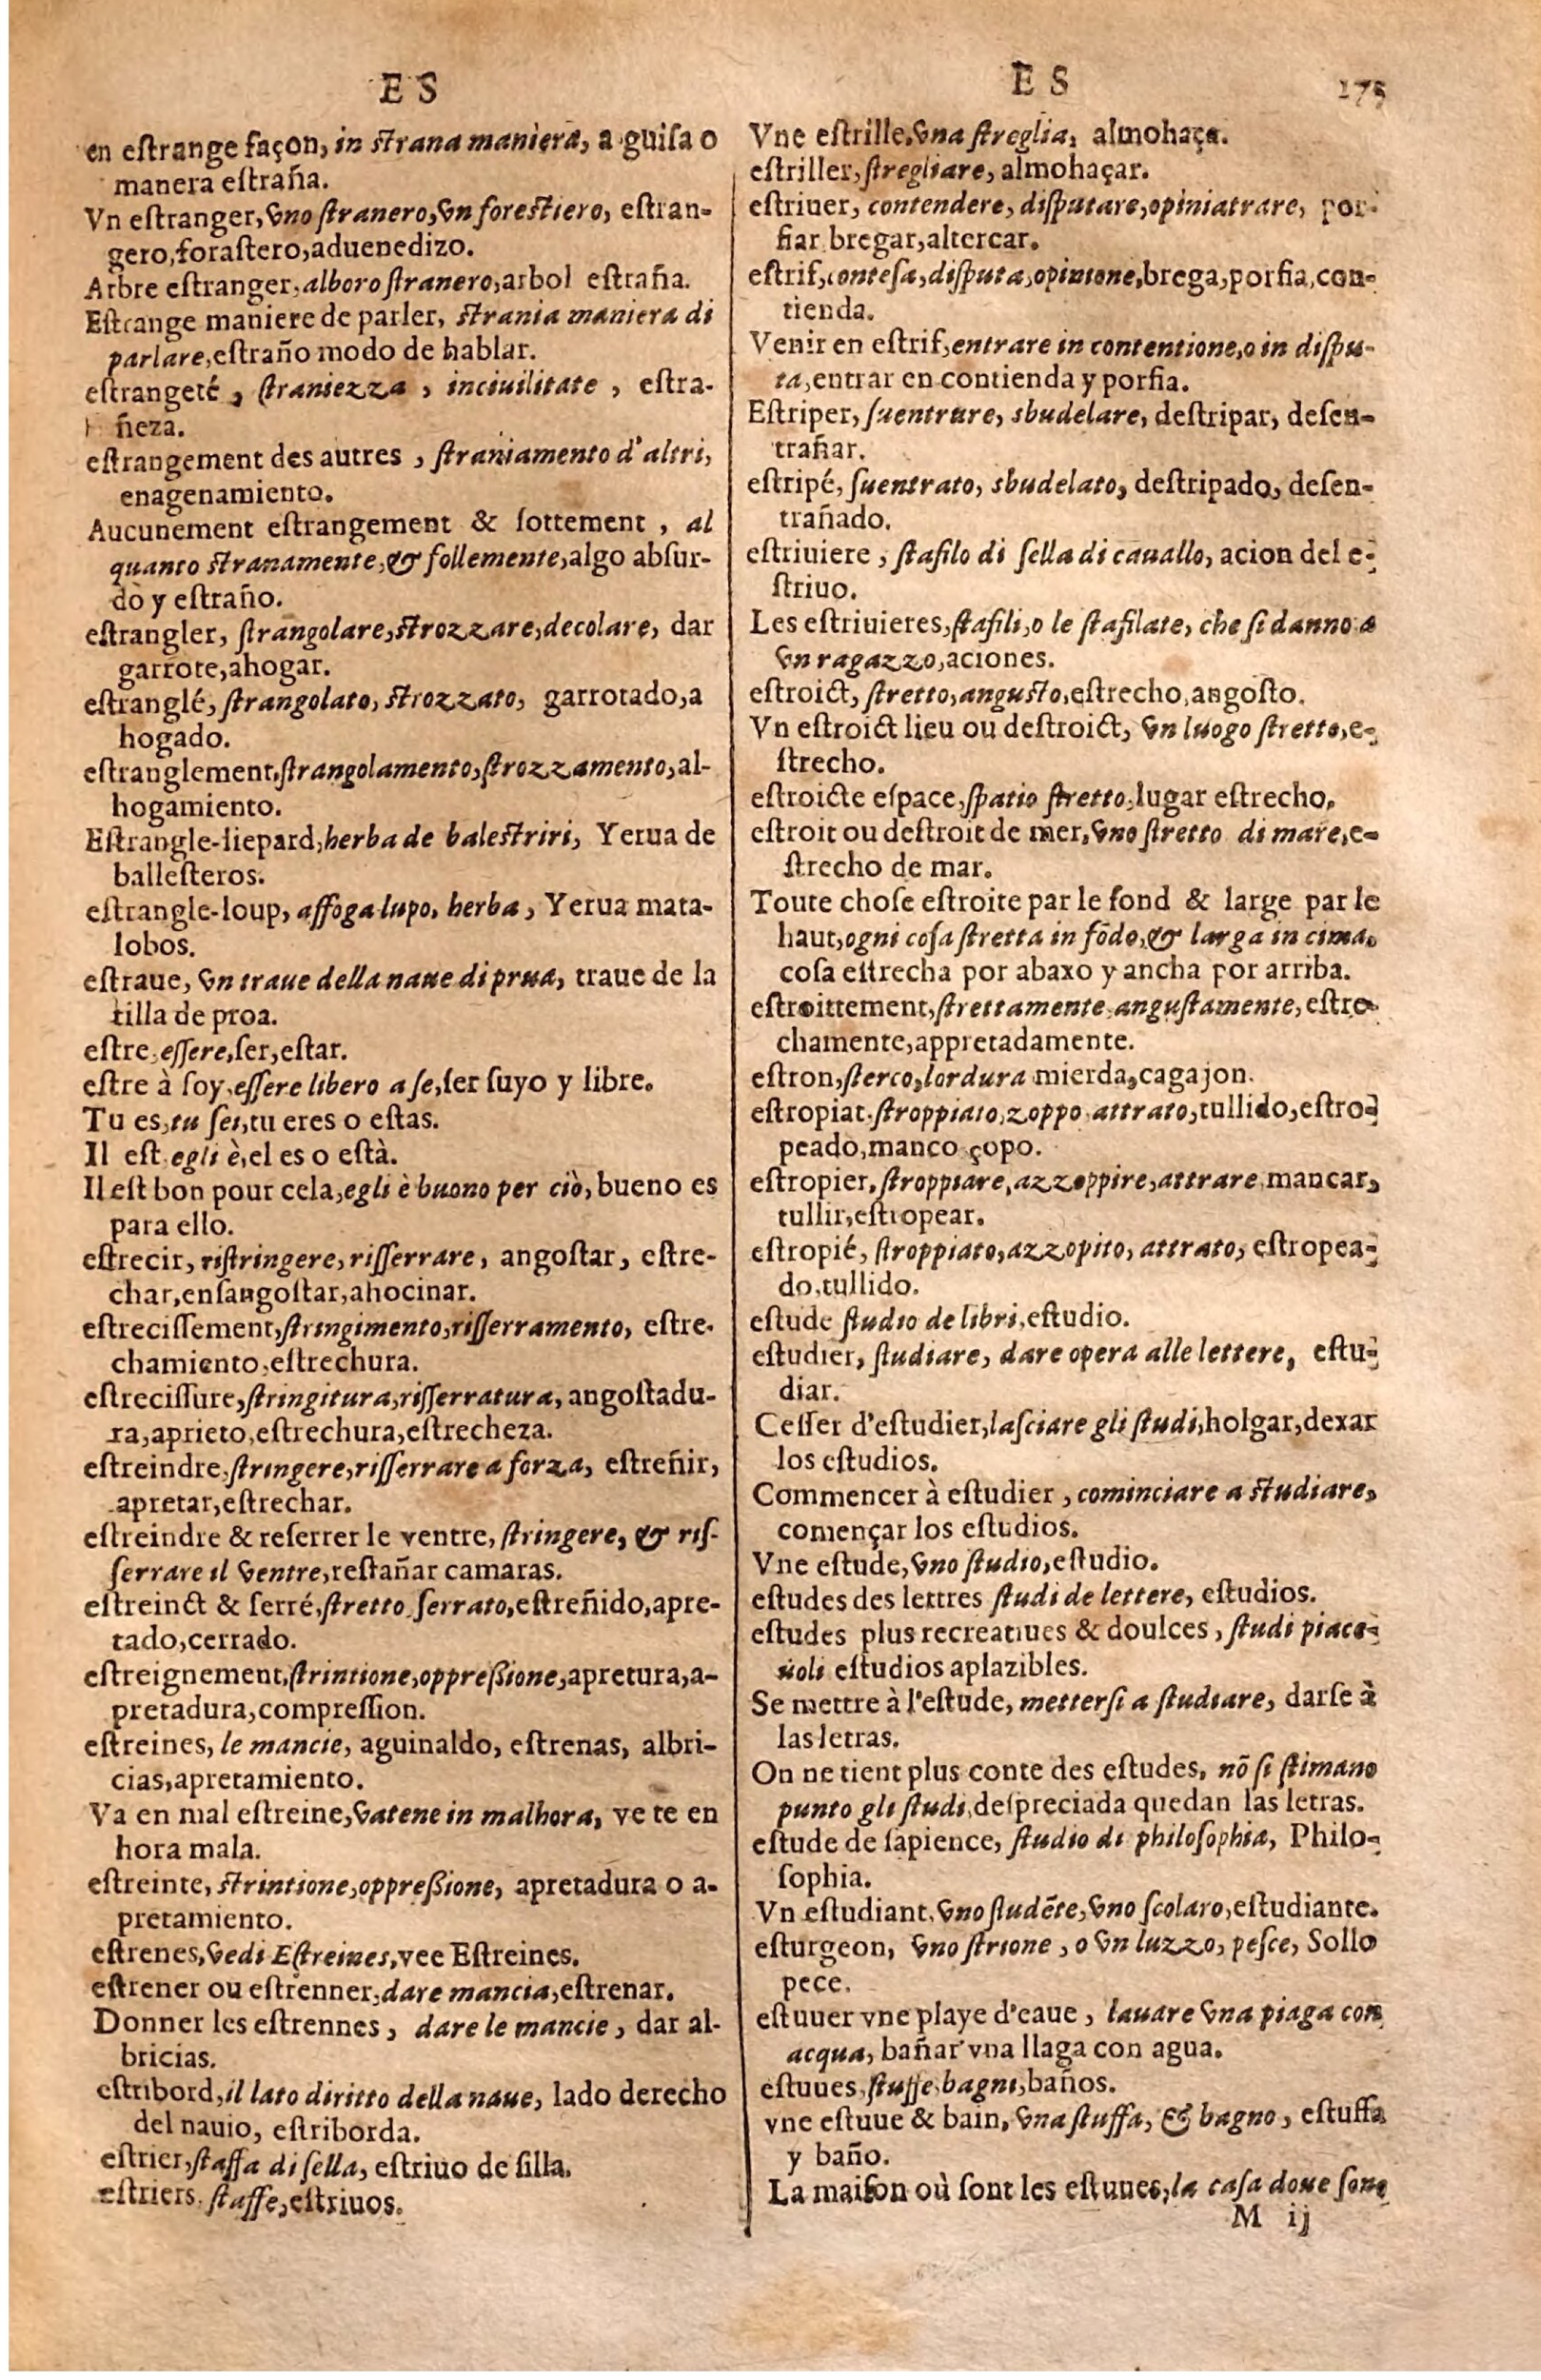 E S
en eſtrange façon, in ſtrana maniera, a guiſa o
manera eſtraña.
Vn eſtranger, vno ſtranero, vn foreſtiero, eſtran-
gero, foraſtero, aduenedizo.
Arbre eſtranger, alboro ſtranero, arbol eſtraña.
Eſtrange maniere de parler, ſtrania maniera di
parlare, eſtraño modo de hablar.
eſtrangeté, ſtraniezza, inciuilitate, eſtra-
ñeza.
eſtrangement des autres, ſtraniamento d'altri,
enagenamiento.
Aucunement eſtrangement & ſottement, al
quanto ſtranamente, & follemente, algo abſur-
do y eſtraño.
eſtrangler, ſtrangolare, ſtrozzare, decolare, dar
garrote, ahogar.
eſtranglé, ſtrangolato, ſtrozzato, garrotado, a
hogado.
eſtranglement, ſtrangolamento, ſtrozzamento, al-
hogamiento.
Eſtrangle-liepard, herba de baleſtriri, Yerua de
balleſteros.
eſtrangle-loup, affoga lupo, herba, Yerua mata-
lobos.
eſtraue, vn traue della naue di prua, traue de la
tilla de proa.
eſtre, eſſere, ſer, eſtar.
eſtre à ſoy, eſſere libero a ſe, ſer ſuyo y libre.
Tu es, tu ſei, tu eres o eſtas.
Il eſt egli è, el es o eſtà.
Il eſt bon pour cela, egli è buono per ciò, bueno es
para ello.
eſtrecir, riſtringere, riſſerrare, angoſtar, eſtre-
char, enſangoſtar, ahocinar.
eſtreciſſement, ſtringimento, riſſerramento, eſtre-
chamiento, eſtrechura.
eſtreciſſure, ſtringitura, riſſerratura, angoſtadu-
ra, aprieto, eſtrechura, eſtrecheza.
eſtreindre, ſtringere, riſſerrare a forza, eſtreñir,
apretar, eſtrechar.
eſtreindre & reſerrer le ventre, ſtringere, & riſ-
ſerrare il ventre, reſtañar camaras.
eſtreinct & ſerré, ſtretto, ſerrato, eſtreñido, apre-
tado, cerrado.
eſtreignement, ſtrintione, oppreßione, apretura, a-
pretadura, compreſſion.
eſtreines, le mancie, aguinaldo, eſtrenas, albri-
cias, apretamiento.
Va en mal eſtreine, vatene in malhora, ve te en
hora mala.
eſtreinte, ſtrintione, oppreßione, apretadura o a-
pretamiento.
eſtrenes, vedi Eſtreines, vee Eſtreines.
eſtrener ou eſtrenner, dare mancia, eſtrenar.
Donner les eſtrennes, dare le mancie, dar al-
bricias.
eſtribord, il lato diritto della naue, lado derecho
del nauio, eſtriborda.
eſtrier, ſtaffa di ſella, eſtriuo de ſilla.
eſtriers, ſtaffe, eſtriuos.
E S 175
Vne eſtrille, vna ſtreglia, almohaça.
eſtriller, ſtregliare, almohaçar.
eſtriuer, contendere, diſputare, opiniatrare, por-
fiar, bregar, altercar.
eſtrif, conteſa, diſputa, opinione, brega, porfia, con-
tienda.
Venir en eſtrif, entrare in contentione, o in diſpu-
ta, entrar en contienda y porfia.
Eſtriper, ſuentrare, sbudelare, deſtripar, deſen-
trañar.
eſtripé, ſuentrato, sbudelato, deſtripado, deſen-
trañado.
eſtriuiere, ſtafilo di ſella di cauallo, acion del e-
ſtriuo.
Les eſtriuieres, ſtafili, o le ſtafilate, che ſi danno a
vn ragazzo, aciones.
eſtroict, ſtretto, anguſto, eſtrecho, angoſto.
Vn eſtroict lieu ou deſtroict, vn luogo ſtretto, e-
ſtrecho.
eſtroicte eſpace, ſpatio ſtretto, lugar eſtrecho.
eſtroit ou deſtroit de mer, vno ſtretto di mare, e-
ſtrecho de mar.
Toute choſe eſtroite par le fond & large par le
haut, ogni coſa ſtretta in fõdo, & larga in cima,
coſa eſtrecha por abaxo y ancha por arriba.
eſtroittement, ſtrettamente, anguſtamente, eſtre-
chamente, appretadamente.
eſtron, ſterco, lordura mierda, cagajon.
eſtropiat, ſtroppiato, zoppo attrato, tullido, eſtro-
peado, manco çopo.
eſtropier, ſtroppiare, azzoppire, attrare, mancar,
tullir, eſtropear.
eſtropié, ſtroppiato, azzopito, attrato, eſtropea-
do, tullido.
eſtude ſtudio de libri, eſtudio.
eſtudier, ſtudiare, dare opera alle lettere, eſtu-
diar.
Ceſſer d'eſtudier, laſciare gli ſtudi, holgar, dexar
los eſtudios.
Commencer à eſtudier, cominciare a ſtudiare,
començar los eſtudios.
Vne eſtude, vno ſtudio, eſtudio.
eſtudes des lettres ſtudi de lettere, eſtudios.
eſtudes plus recreatiues & doulces, ſtudi piace-
uoli eſtudios aplazibles.
Se mettre à l'eſtude, metterſi a ſtudiare, darſe à
las letras.
On ne tient plus conte des eſtudes, nõ ſi ſtimano
punto gli ſtudi, deſpreciada quedan las letras.
eſtude de ſapience, ſtudio di philoſophia, Philo-
ſophia.
Vn eſtudiant, vno ſtudẽte, vno ſcolaro, eſtudiante.
eſturgeon, vno ſtrione, o vn luzzo, peſce, Sollo
pece.
eſtuuer vne playe d'eaue, lauare vna piaga con
acqua, bañar vna llaga con agua.
eſtuues, ſtuffe, bagni, baños.
vne eſtuue & bain, vna ſtuffa, & bagno, eſtuffa
y baño.
La maiſon où ſont les eſtuues, la caſa doue ſono
M ij